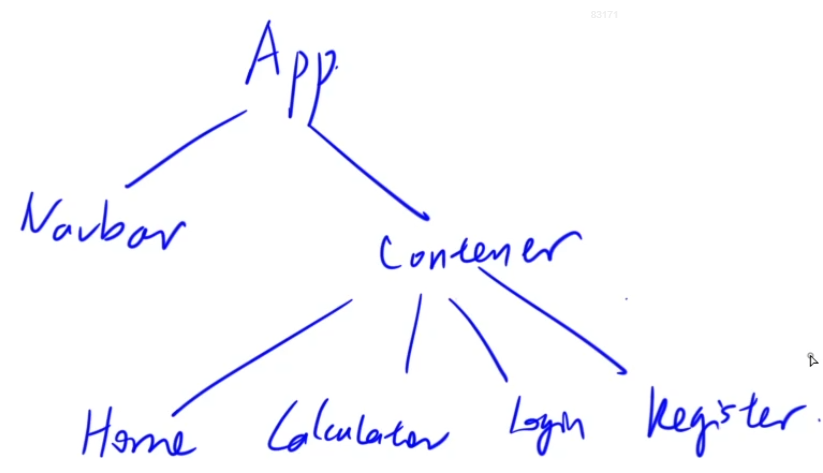 83171
App
Navbar
Contener
Home Calculator Login Register